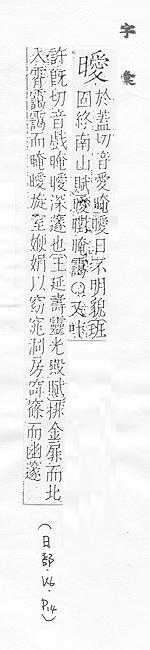 字彙
曖
於蓋切音愛晻曖日不明貌班
固終南山賦曖晻靄○又叶
許既切音戲晻曖深邃也王延壽靈光殿賦排金扉而北
入霄靄靄而晻曖旋室㛹娟以窈窕洞房窱而幽邃
(日部·V6·P.14)